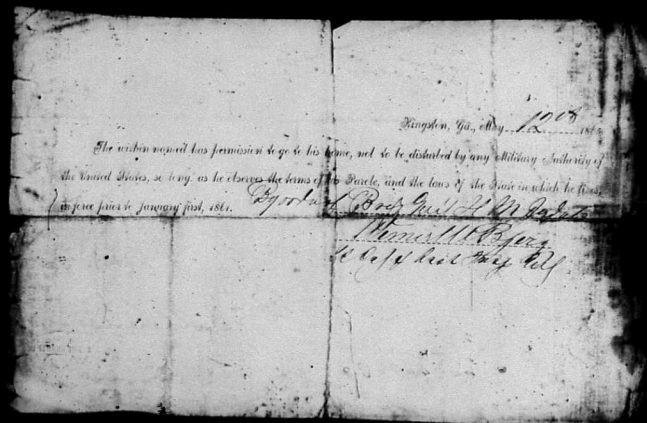 Kingston, Ga., May 12 186
The within named has permission to go to his home, not to be disturbed by any Military Authority of
the United States, so long as he observes the terms of his Parole, and the laws of the State in which he lives,
in force prior to January first, 1861. By order of Brig Gen'l H M Judah
Capt &